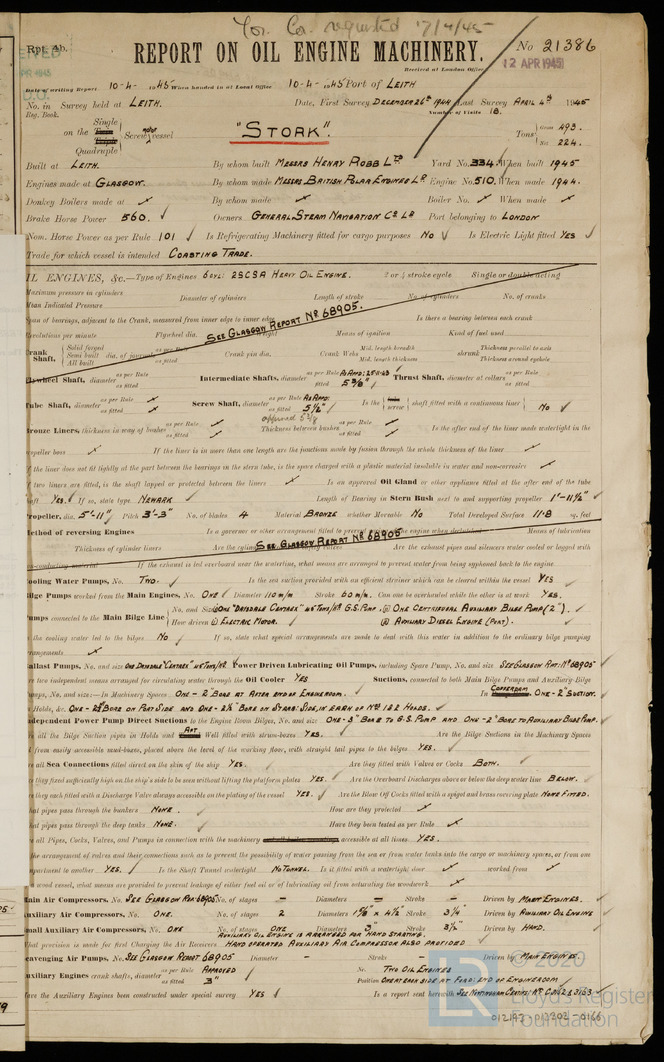 For. Co. requested 17/4/45
Rpt. 4b.
REPORT ON OIL ENGINE MACHINERY.
No 21386
12 APR 1945
Received at London Office
Date of writing Report 10-4- 1945 When handed in at Local Office 10-4- 1945 Port of LEITH
No. in Survey held at LEITH. Date, First Survey DECEMBER 26th 1944 Last Survey APRIL 4th 1945
Reg. Book. Number of Visits 18.
Single
on the Twin Triple Quadruple Screw vessel
"STORK." Tons Gross 493. Net 224.
Built at LEITH. By whom built MESSRS HENRY ROBB LTD Yard No. 334. When built 1945
Engines made at GLASGOW. By whom made MESSRS BRITISH POLAR ENGINES LD Engine No. 510. When made 1944.
Donkey Boilers made at By whom made Boiler No. When made
Brake Horse Power 560. Owners GENERAL STEAM NAVIGATION CO LD Port belonging to LONDON
Nom. Horse Power as per Rule 101 Is Refrigerating Machinery fitted for cargo purposes NO Is Electric Light fitted YES
Trade for which vessel is intended COASTING TRADE.
IL ENGINES, &c.—Type of Engines 6 CYL: 2SCSA HEAVY OIL ENGINE. 2 or 4 stroke cycle Single or double acting
Maximum pressure in cylinders Diameter of cylinders Length of stroke No. of cylinders No. of cranks
Mean Indicated Pressure
Span of bearings, adjacent to the Crank, measured from inner edge to inner edge Is there a bearing between each crank
SEE GLASGOW REPORT No 68905.
Revolutions per minute Flywheel dia. Weight Means of ignition Kind of fuel used
Crank Shaft, Solid forged Semi built All built dia. of journals as per Rule as fitted Crank pin dia. Crank Webs Mid. length breadth Mid. length thickness shrunk Thickness parallel to axis Thickness around eyehole
Flywheel Shaft, diameter as per Rule as fitted Intermediate Shafts, diameter as per Rule AS APPD: 25-11-43 as fitted 5 3/8" Thrust Shaft, diameter at collars as per Rule as fitted
Tube Shaft, diameter as per Rule as fitted Screw Shaft, diameter as per Rule AS APPD: as fitted 5 1/2" Is the tube screw shaft fitted with a continuous liner NO
approved 5 3/8
Bronze Liners, thickness in way of bushes as per Rule as fitted Thickness between bushes as per Rule as fitted Is the after end of the liner made watertight in the
propeller boss If the liner is in more than one length are the junctions made by fusion through the whole thickness of the liner
If the liner does not fit tightly at the part between the bearings in the stern tube, is the space charged with a plastic material insoluble in water and non-corrosive
If two liners are fitted, is the shaft lapped or protected between the liners Is an approved Oil Gland or other appliance fitted at the after end of the tube
shaft YES. If so, state type NEWARK Length of Bearing in Stern Bush next to and supporting propeller 1'-11 1/2"
Propeller, dia. 5'-11" Pitch 3'-3" No. of blades 4 Material BRONZE whether Moveable NO Total Developed Surface 11.8 sq. feet
Method of reversing Engines Is a governor or other arrangement fitted to prevent racing of the engine when declutched Means of lubrication
SEE GLASGOW REPORT No 68905
Thickness of cylinder liners Are the cylinders fitted with safety valves Are the exhaust pipes and silencers water cooled or lagged with
non-conducting material If the exhaust is led overboard near the waterline, what means are arranged to prevent water from being syphoned back to the engine
Cooling Water Pumps, No. TWO. Is the sea suction provided with an efficient strainer which can be cleared within the vessel YES
Bilge Pumps worked from the Main Engines, No. ONE Diameter 110 m/m Stroke 60 m/m. Can one be overhauled while the other is at work YES.
Pumps connected to the Main Bilge Line No. and Size ① ONE "DRYSDALE CENTREX" 45 TONS/HR. G.S. PUMP. ② ONE CENTRIFUGAL AUXILIARY BILGE PUMP (2").
How driven ① ELECTRIC MOTOR. ② AUXILIARY DIESEL ENGINE (PORT).
Is the cooling water led to the bilges NO If so, state what special arrangements are made to deal with this water in addition to the ordinary bilge pumping
arrangements
Ballast Pumps, No. and size ONE DRYSDALE "CENTREX" 45 TONS/HR. Power Driven Lubricating Oil Pumps, including Spare Pump, No. and size SEE GLASGOW RPT: No 68905
Are two independent means arranged for circulating water through the Oil Cooler YES Suctions, connected to both Main Bilge Pumps and Auxiliary Bilge
Pumps, No. and size:—In Machinery Spaces ONE - 2" BORE AT AFTER END OF ENGINEROOM. In COFFERDAM ONE - 2" SUCTION.
In Holds, &c. ONE - 2 1/2" BORE ON PORT SIDE AND ONE - 2 1/2" BORE ON STARB: SIDE, IN EACH OF Nos 1 & 2 HOLDS.
Independent Power Pump Direct Suctions to the Engine Room Bilges, No. and size ONE - 3" BORE TO G.S. PUMP AND ONE - 2" BORE TO AUXILIARY BILGE PUMP.
Are all the Bilge Suction pipes in Holds and AFT Well fitted with strum-boxes YES. Are the Bilge Suctions in the Machinery Spaces
led from easily accessible mud-boxes, placed above the level of the working floor, with straight tail pipes to the bilges YES.
Are all Sea Connections fitted direct on the skin of the ship YES. Are they fitted with Valves or Cocks BOTH.
Are they fixed sufficiently high on the ship's side to be seen without lifting the platform plates YES. Are the Overboard Discharges above or below the deep water line BELOW.
Are they each fitted with a Discharge Valve always accessible on the plating of the vessel YES. Are the Blow Off Cocks fitted with a spigot and brass covering plate NONE FITTED.
What pipes pass through the bunkers NONE. How are they protected
What pipes pass through the deep tanks NONE. Have they been tested as per Rule
Are all Pipes, Cocks, Valves, and Pumps in connection with the machinery accessible at all times YES.
Is the arrangement of valves and their connections such as to prevent the possibility of water passing from the sea or from water tanks into the cargo or machinery spaces, or from one
compartment to another YES. Is the Shaft Tunnel watertight NO TUNNEL. Is it fitted with a watertight door worked from
If a wood vessel, what means are provided to prevent leakage of either fuel oil or of lubricating oil from saturating the woodwork
Main Air Compressors, No. SEE GLASGOW RPT: 68905 No. of stages — Diameters — Stroke — Driven by MAIN ENGINES.
Auxiliary Air Compressors, No. ONE. No. of stages 2 Diameters 4 5/8" x 4 1/2" Stroke 3 1/4" Driven by AUXILIARY OIL ENGINE
Small Auxiliary Air Compressors, No. ONE No. of stages ONE Diameters 3" Stroke 3 1/2" Driven by HAND.
AUXILIARY OIL ENGINE IS ARRANGED FOR HAND STARTING.
What provision is made for first Charging the Air Receivers HAND OPERATED AUXILIARY AIR COMPRESSOR ALSO PROVIDED
Scavenging Air Pumps, No. SEE GLASGOW REPORT 68905 Diameter — Stroke — Driven by MAIN ENGINES.
Auxiliary Engines crank shafts, diameter as per Rule APPROVED as fitted 3" No. TWO OIL ENGINES
Position ONE AT EACH SIDE AT FORD: END OF ENGINEROOM
Have the Auxiliary Engines been constructed under special survey YES Is a report sent herewith SEE NOTTINGHAM CERTIFS: No C.3162 & 3163
© 2020
Lloyd's Register
Foundation
012193-012202-0166